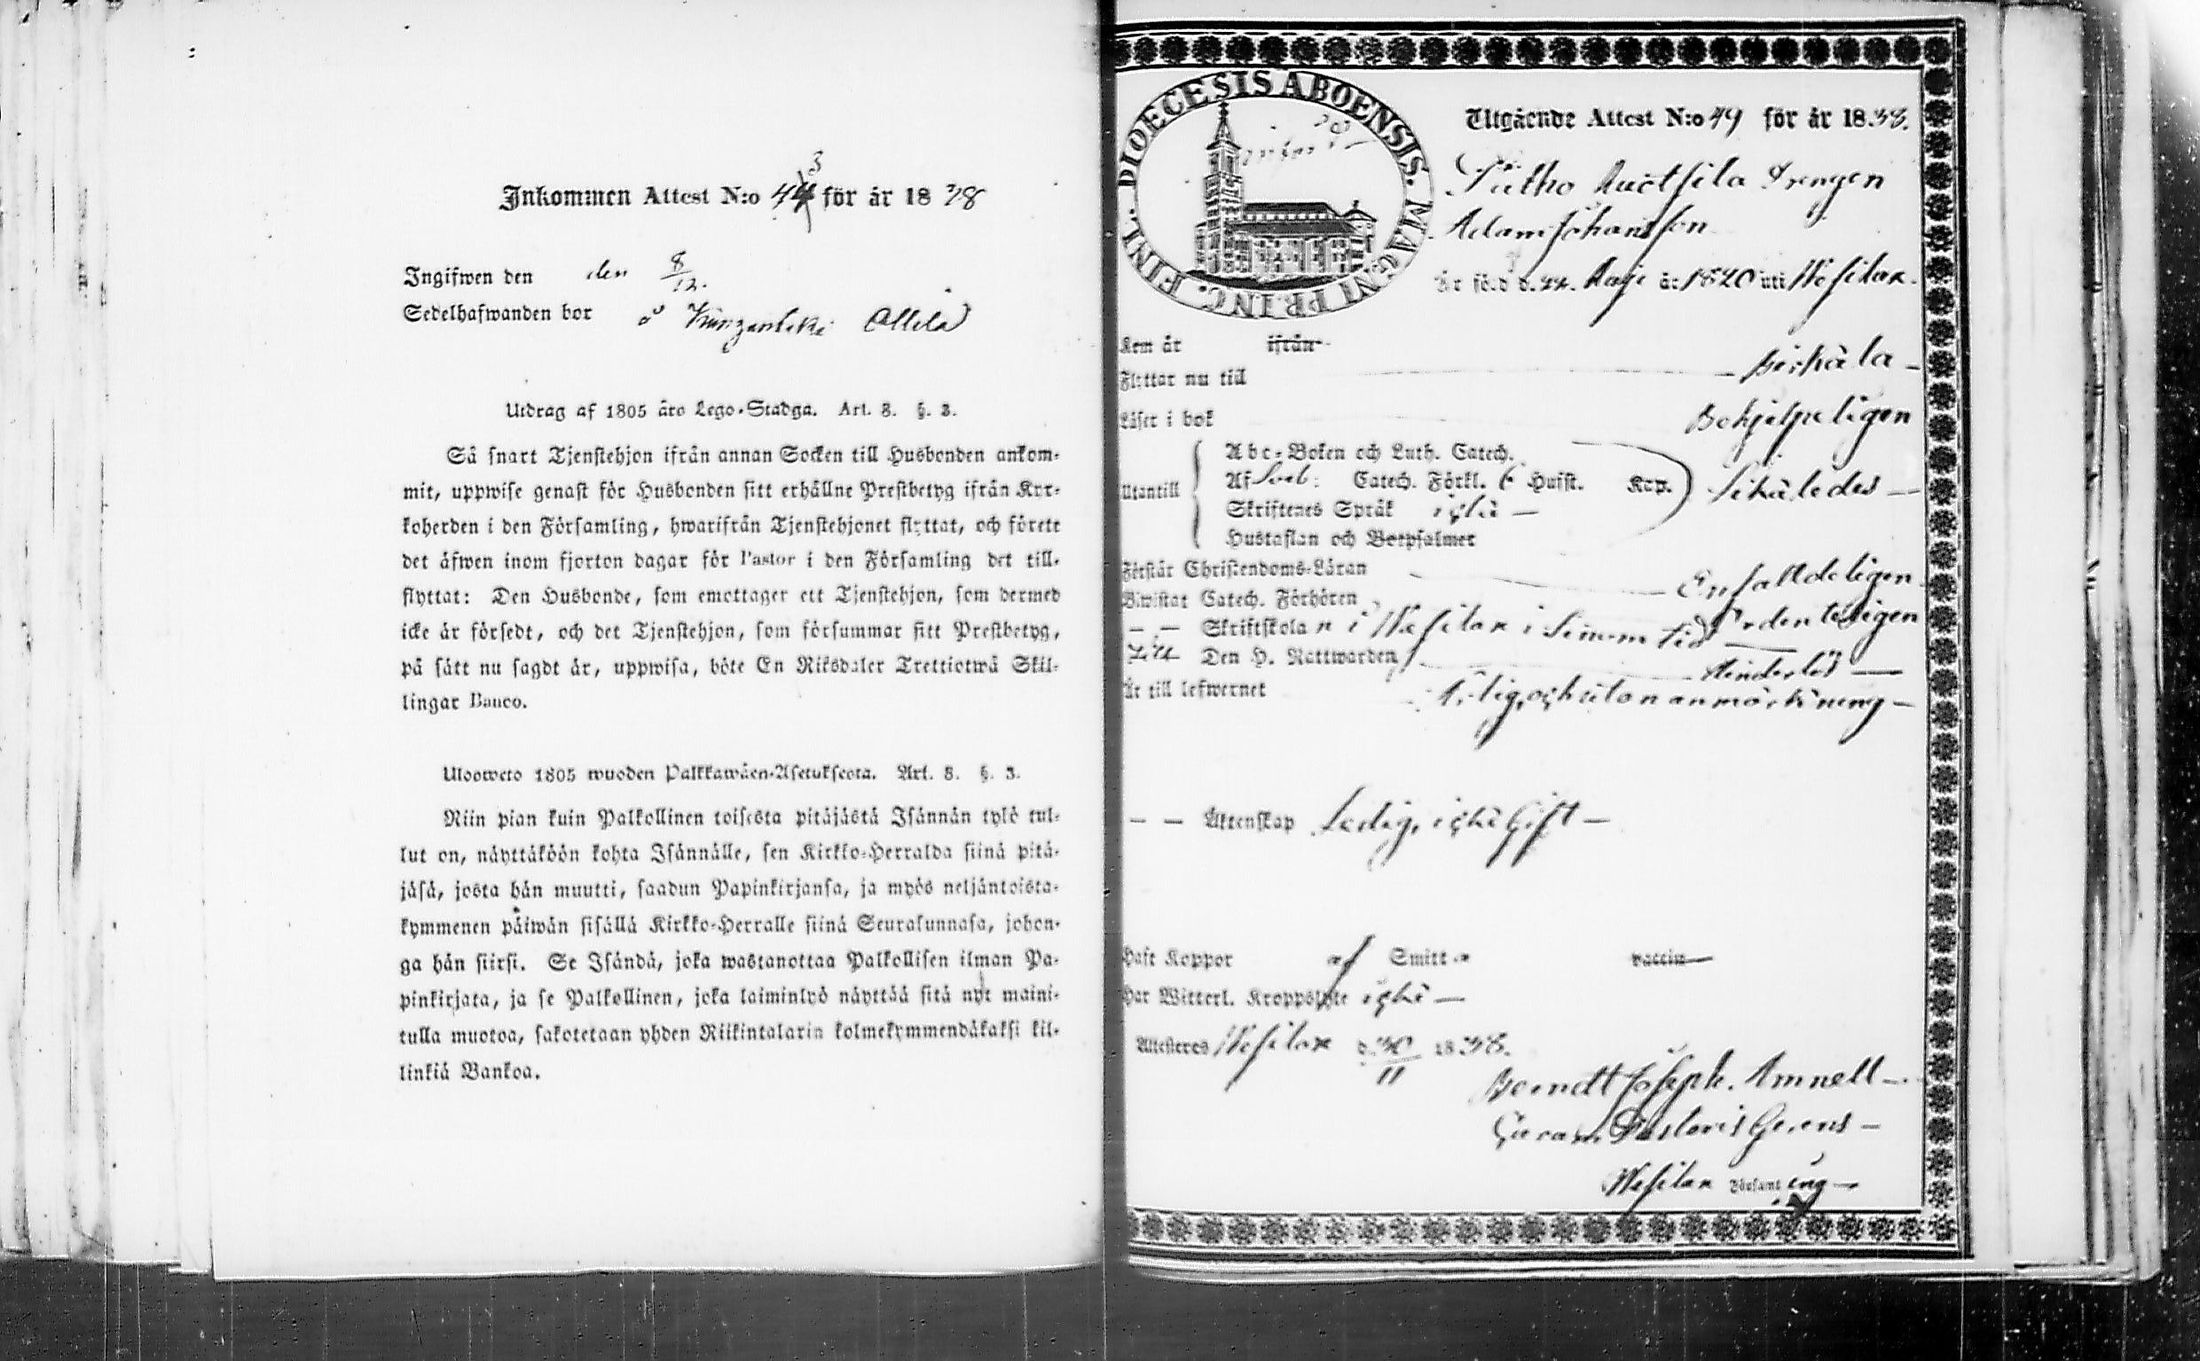 Inkommen Attest N:o 443 för år 1838
Ingifwen den den 8/12.
Sedelhafwanden bor å Attila
Utdrag af 1805 års Lego-Stadga. Art. 8. §. 3.
Så snart Tjenstehjon ifrån annan Socken till Husbonden ankom-
mit, uppwise genast för Husbonden sitt erhållne Prestbetyg ifrån Kyr-
koherden i den Församling, hwarifrån Tjenstehjonet flyttat, och förete
det äfwen inom fjorton dagar för Pastor i den Församling det till-
flyttat: Den Husbonde, som emottager ett Tjenstehjon, som dermed
icke är försedt, och det Tjenstehjon, som försummar sitt Prestbetyg,
på sätt nu sagdt är, uppwisa, böte En Riksdaler Trettiotwå Skil-
lingar Banco.
Ulosweto 1805 wuoden Palkkawäen-Asetuksesta. Art. 8. §. 3.
Niin pian kuin Palkollinen toisesta pitäjästä Isännän tylö tul-
lut on, näyttäköön kohta Isännälle, sen Kirkko-Herralda siinä pitä-
jäsä, josta hän muutti, saadun Papinkirjansa, ja myös neljäntoista-
kymmenen päiwän sisällä Kirkko-Herralle siinä Seurakunnasa, johon-
ga hän siirsi. Se Isändä, joka wastanottaa Palkollisen ilman Pa-
pinkirjata, ja se Palkollinen, joka laiminlyö näyttää sitä nyt maini-
tulla muotoa, sakotetaan yhden Riikintalarin kolmekymmendäkaksi kil-
linkiä Bankoa.
DIOECESIS ABOENSIS. MAGNI PRINC. FINL.
Utgående Attest N:o 49 för år 1838.
Drengen
Adam Johansson
Är född d. 22. Maji år 1820 uti Wesilax.
Kom år ifrån
Flyttar nu till Birkala
Läser i bok Behjelpeligen
Utantill
Abc-Boken och Luth. Catech.
Af Sveb: Catech. Förkl. 6 Hufst. Kap. Likaledes
Skriftenes Språk icke
Hustaflan och Botpsalmer
Förstår Christendoms-Läran Enfaldeligen
Biwistat Catech. Förhören Ordenteligen
Skriftskolan i Wesilax i sinom tid
Till Den H. Nattwarden Hinderlös
Är till lefwernet Ärlig, och utan anmärkning
Äktenskap Ledig, icke Gift
Haft Koppor af Smitta vaccin
Har Witterl. Kroppslyte icke
Attesteras Wesilax d. 30/11 1838.
Berndt Joseph. Amnell
Curam Pastoris Gerens
Wesilax Församling